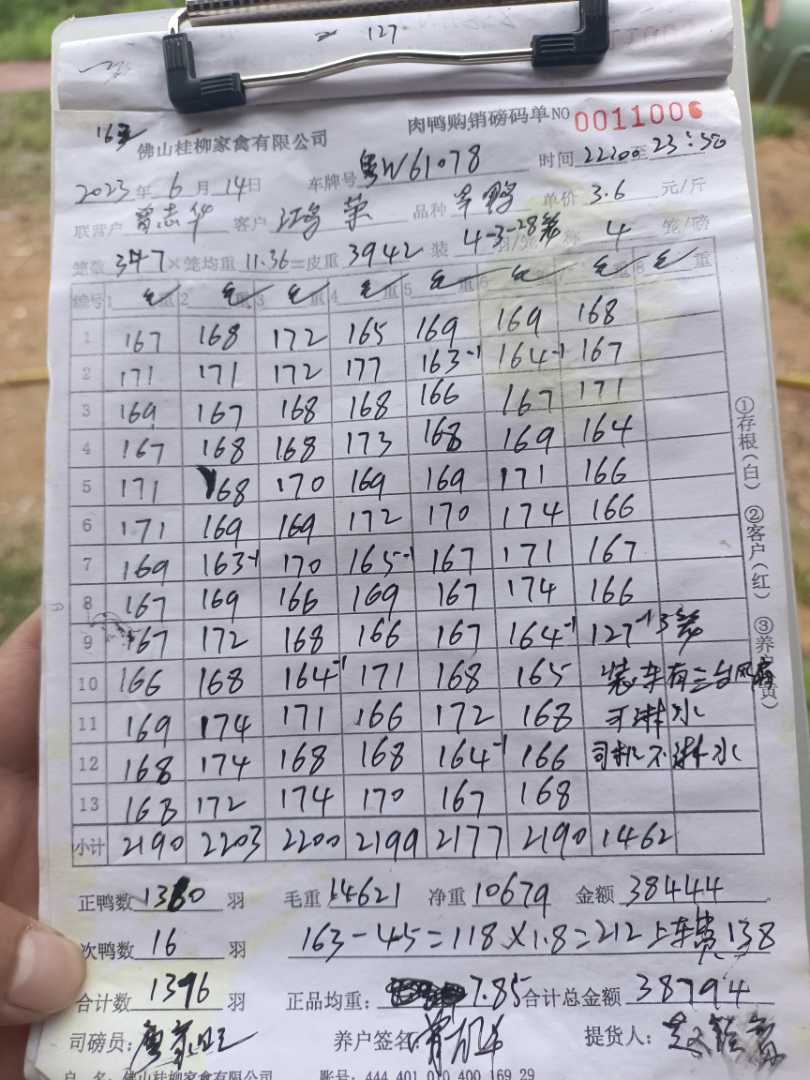 127
16天
佛山桂柳家禽有限公司 肉鸭购销磅码单NO 0011006
2023年6月14日 车牌号 粤W61078 时间 22:00至23:50
联营户 曾志华 客户 品种 单价 3.6 元/斤
笼数 347×笼均重 11.36=皮重 3942 装 4-3-28笼 称 4 笼/磅
编号 1 毛重 2 毛重 3 毛重 4 毛重 5 毛重 毛重 毛重 8 毛重
1 167 168 172 165 169 169 168
2 171 171 172 177 163-1 164-1 167
3 169 167 168 168 166 167 171
4 167 168 168 173 168 169 164
5 171 168 170 169 169 171 166
6 171 169 169 172 170 174 166
7 169 163-1 170 165-1 167 171 167
8 167 169 166 169 167 174 166
9 167 172 168 166 167 164-1 127-1 3笼
10 166 168 164-1 171 168 165 装车有三台风扇
11 169 174 171 166 172 168 可淋水
12 168 174 168 168 164-1 166 司机不淋水
13 168 172 174 170 167 168
小计 2190 2203 2200 2199 2177 2190 1462
①存根(白) ②客户(红) ③养户(黄)
正鸭数 1380 羽 毛重 14621 净重 10679 金额 38444
次鸭数 16 羽 163-45=118×1.8=212 上车费 138
合计数 1396 羽 正品均重: 7.85 合计总金额 38794
司磅员: 养户签名 提货人:
户 名: 佛山桂柳家禽有限公司 账号: 444 401 010 400 169 29